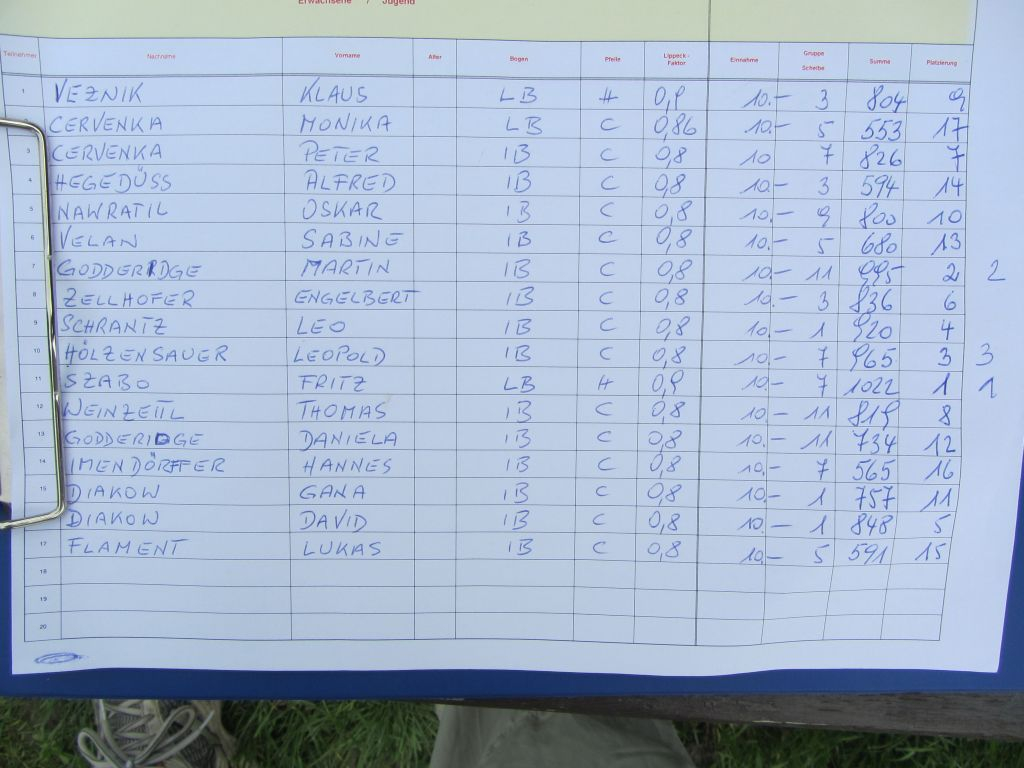 Erwachsene / Jugend
Teilnehmer Nachname Vorname Alter Bogen Pfeile Lippeck-Faktor Einnahme Gruppe Scheibe Summe Platzierung
1 VEZNIK KLAUS LB H 0,9 10.- 3 804 9
2 CERVENKA MONIKA LB C 0,86 10.- 5 553 17
3 CERVENKA PETER IB C 0,8 10 7 826 7
4 HEGEDÜSS ALFRED IB C 0,8 10.- 3 594 14
5 NAWRATIL OSKAR IB C 0,8 10.- 9 800 10
6 VELAN SABINE IB C 0,8 10.- 5 680 13
7 GODDERIDGE MARTIN IB C 0,8 10.- 11 995 2 2
8 ZELLHOFER ENGELBERT IB C 0,8 10.- 3 836 6
9 SCHRANTZ LEO IB C 0,8 10.- 1 920 4
10 HÖLZENSAUER LEOPOLD IB C 0,8 10.- 7 965 3 3
11 SZABO FRITZ LB H 0,9 10.- 7 1022 1 1
12 WEINZETTL THOMAS IB C 0,8 10.- 11 819 8
13 GODDERIDGE DANIELA IB C 0,8 10.- 11 734 12
14 IMENDÖRFFER HANNES IB C 0,8 10.- 7 565 16
15 DIAKOW GANA IB C 0,8 10.- 1 757 11
DIAKOW DAVID IB C 0,8 10.- 1 848 5
17 FLAMENT LUKAS IB C 0,8 10.- 5 591 15
18
19
20